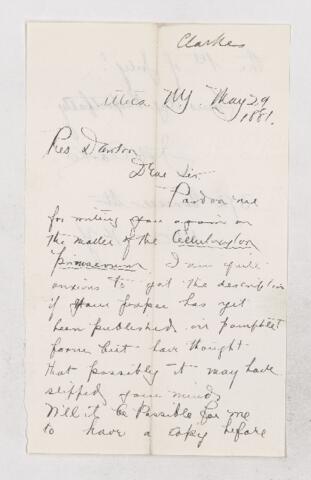 Clarke
Utica NY May 29
1881.
Pres Dawson
Dear Sir
Pardon me
for writing you again on
the matter of the
primaevum I am quite
anxious to get the description
if your paper has yet
been published in pamphlet
form but have thought
that possibly it may have
slipped your mind
Will it be Possible for me
to have a copy before